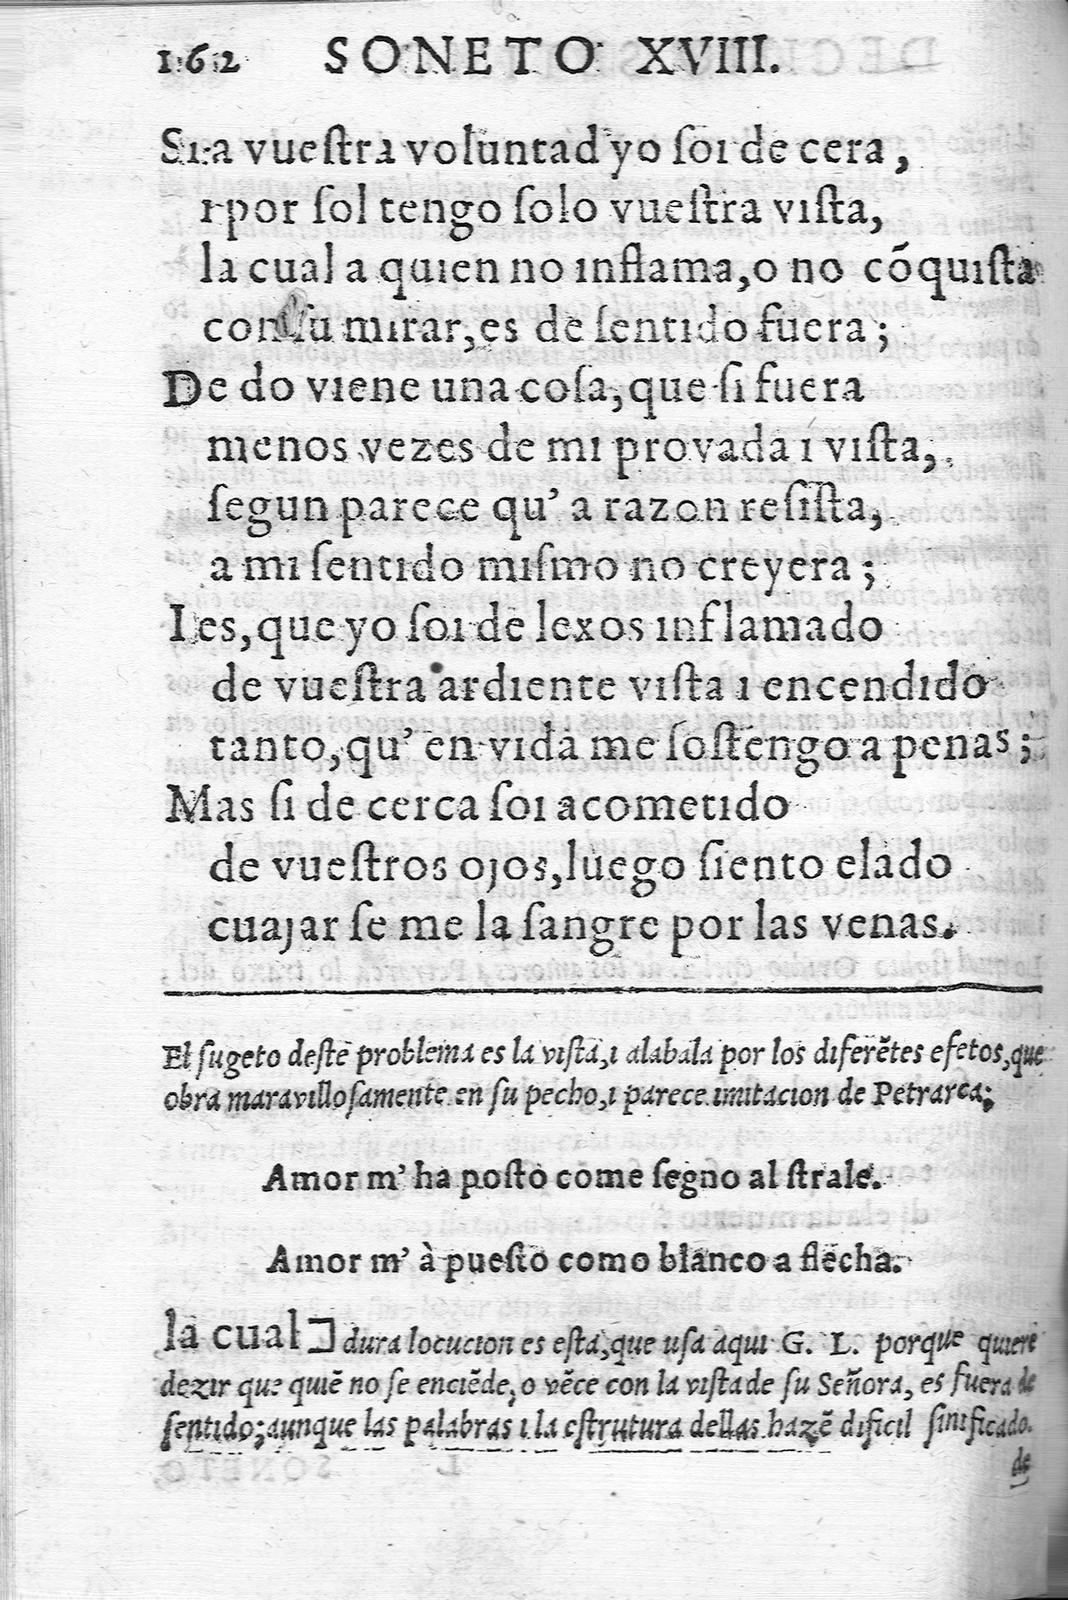 162 SONETO XVIII.
Si a vueſtra voluntad yo ſoi de cera,
i por ſol tengo ſolo vueſtra viſta,
la cual a quien no inflama, o no cõquiſta
con ſu mirar, es de ſentido fuera;
De do viene una coſa, que ſi fuera
menos vezes de mi provada i viſta,
ſegun parece qu' a razon reſiſta,
a mi ſentido miſmo no creyera;
I es, que yo ſoi de lexos inflamado
de vueſtra ardiente viſta i encendido
tanto, qu' en vida me ſoſtengo a penas;
Mas ſi de cerca ſoi acometido
de vueſtros ojos, luego ſiento elado
cuajar ſe me la ſangre por las venas.
El ſugeto deſte problema es la viſta, i alabala por los diferẽtes efetos, que
obra maravilloſamente en ſu pecho, i parece imitacion de Petrarca;
Amor m' ha poſto come ſegno al ſtrale.
Amor m' à pueſto como blanco a flecha.
la cual] dura locucion es eſta, que uſa aqui G. L. porque quiere
dezir que quiẽ no ſe enciẽde, o vẽce con la viſta de ſu Señora, es fuera de
ſentido; aunque las palabras i la eſtrutura dellas hazẽ dificil ſinificado.
de